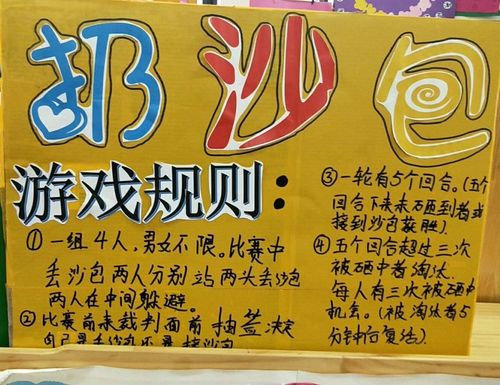 扔沙包
游戏规则：
①一组4人，男女不限。比赛中
丢沙包两人分别站两头丢沙包
两人在中间躲避。
②比赛前来裁判面前抽签决定
自己是丢沙包还是接沙包
③一轮有5个回合。(五个
回合下来未砸到者或
接到沙包获胜).
④五个回合超过三次
被砸中者淘汰.
每人有三次被砸中
机会。(被淘汰者5
分钟后复活).